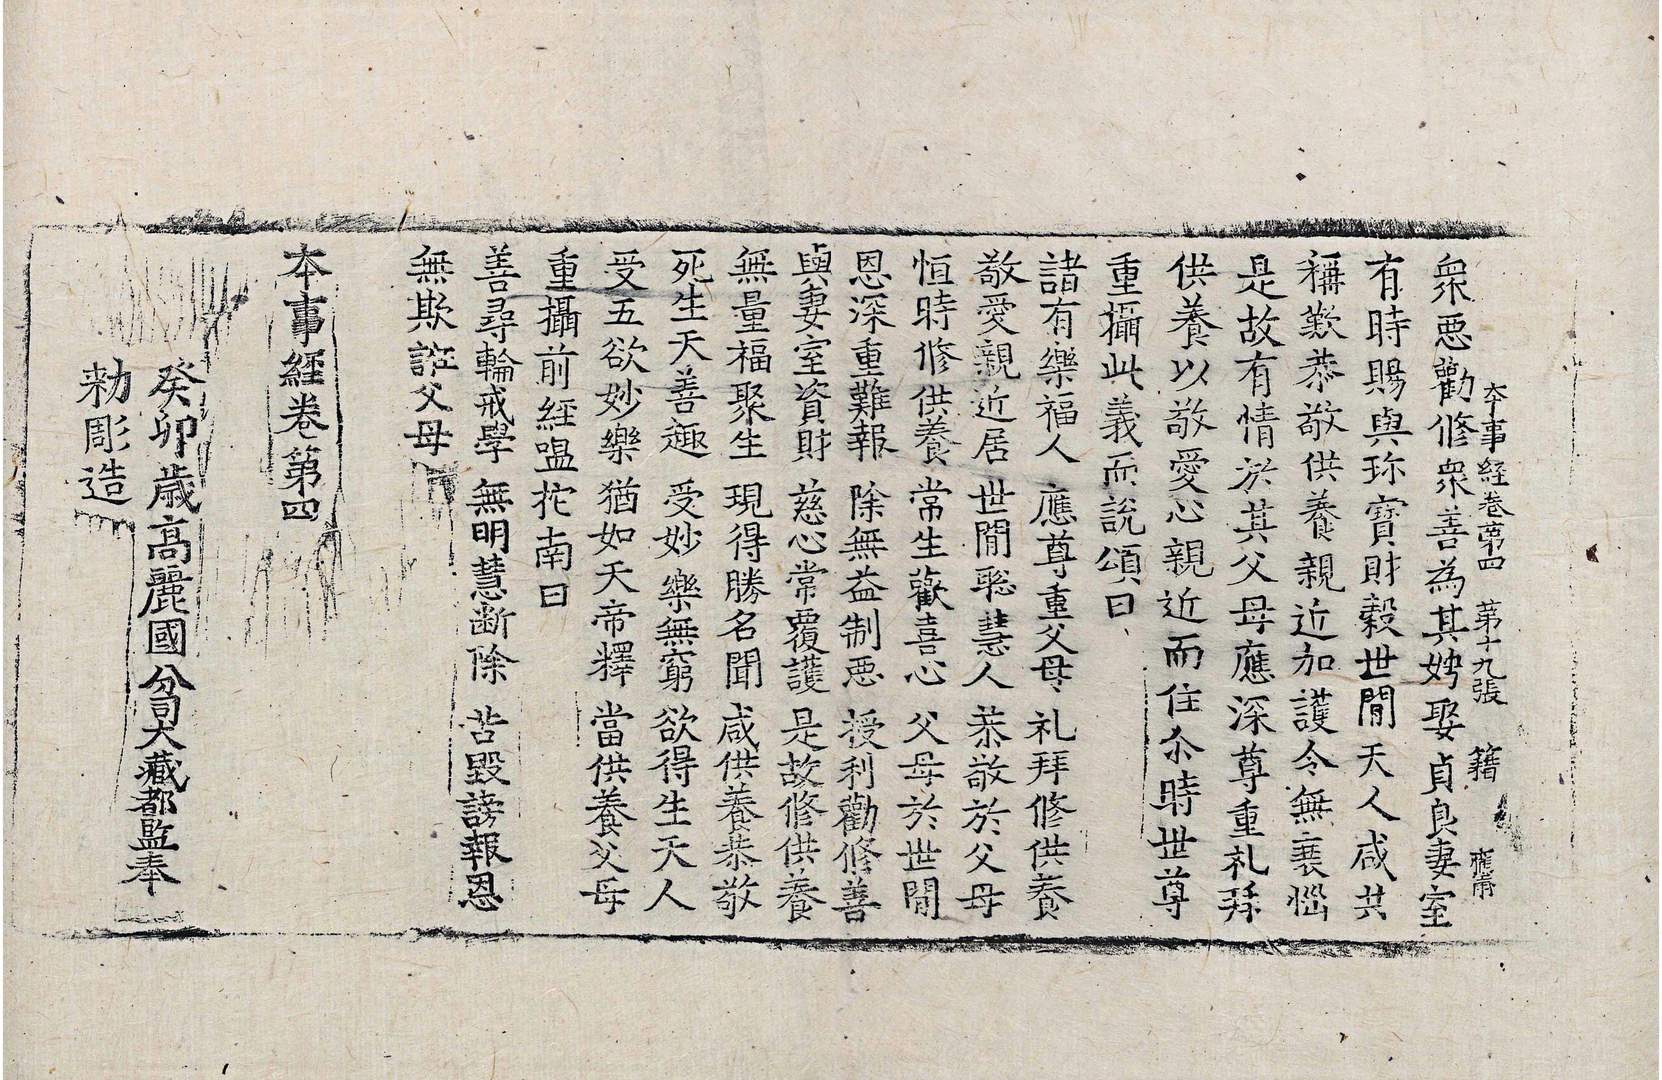 本事経卷第四 第十九張 籍
衆惡勸修衆善為其娉娶貞良妻室
有時賜與珎寶財穀世間天人咸共
稱歎恭敬供養親近加護令無衰惱
是故有情於其父母應深尊重礼拜
供養以敬愛心親近而住尒時世尊
重攝此義而說頌曰
諸有樂福人 應尊重父母 礼拜修供養
敬愛親近居 世間聡慧人 恭敬於父母
恒時修供養 常生歡喜心 父母於世間
恩深重難報 除無益制惡 授利勸修善
與妻室資財 慈心常覆護 是故修供養
無量福聚生 現得勝名聞 咸供養恭敬
死生天善趣 受妙樂無窮 欲得生天人
受五欲妙樂 猶如天帝釋 當供養父母
重攝前經嗢拕南曰
善尋輪戒學 無明慧断除 苦毀謗報恩
無欺誑父母
本事經卷第四
癸卯歲高麗國分司大藏都監奉
勑彫造